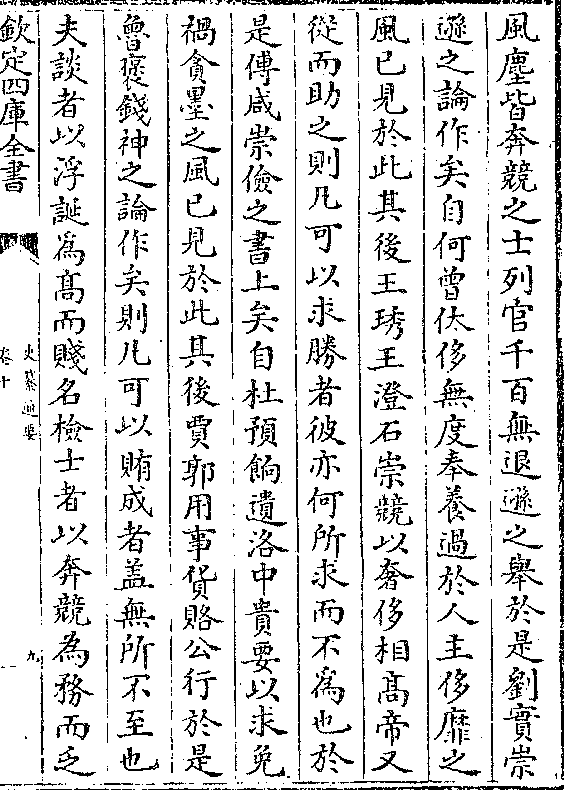 風塵皆奔競之士列官千百無退遜之舉於是劉寔崇
遜之論作矣自何曾㳄侈無度奉養過於人主侈靡之
風已見於此其後王琇王澄石崇競以奢侈相髙帝又
從而助之則凡可以求勝者彼亦何所求而不爲也於
是傅咸崇儉之書上矣自杜預餉遺洛中貴要以求免
禍貪墨之風已見於此其後賈郭用事貨賂公行於是
魯褒錢神之論作矣則凡可以賄成者盖無所不至也
夫談者以浮誕爲髙而賤名檢士者以奔競為務而乏
欽定四庫全書
史纂通要
卷十
九